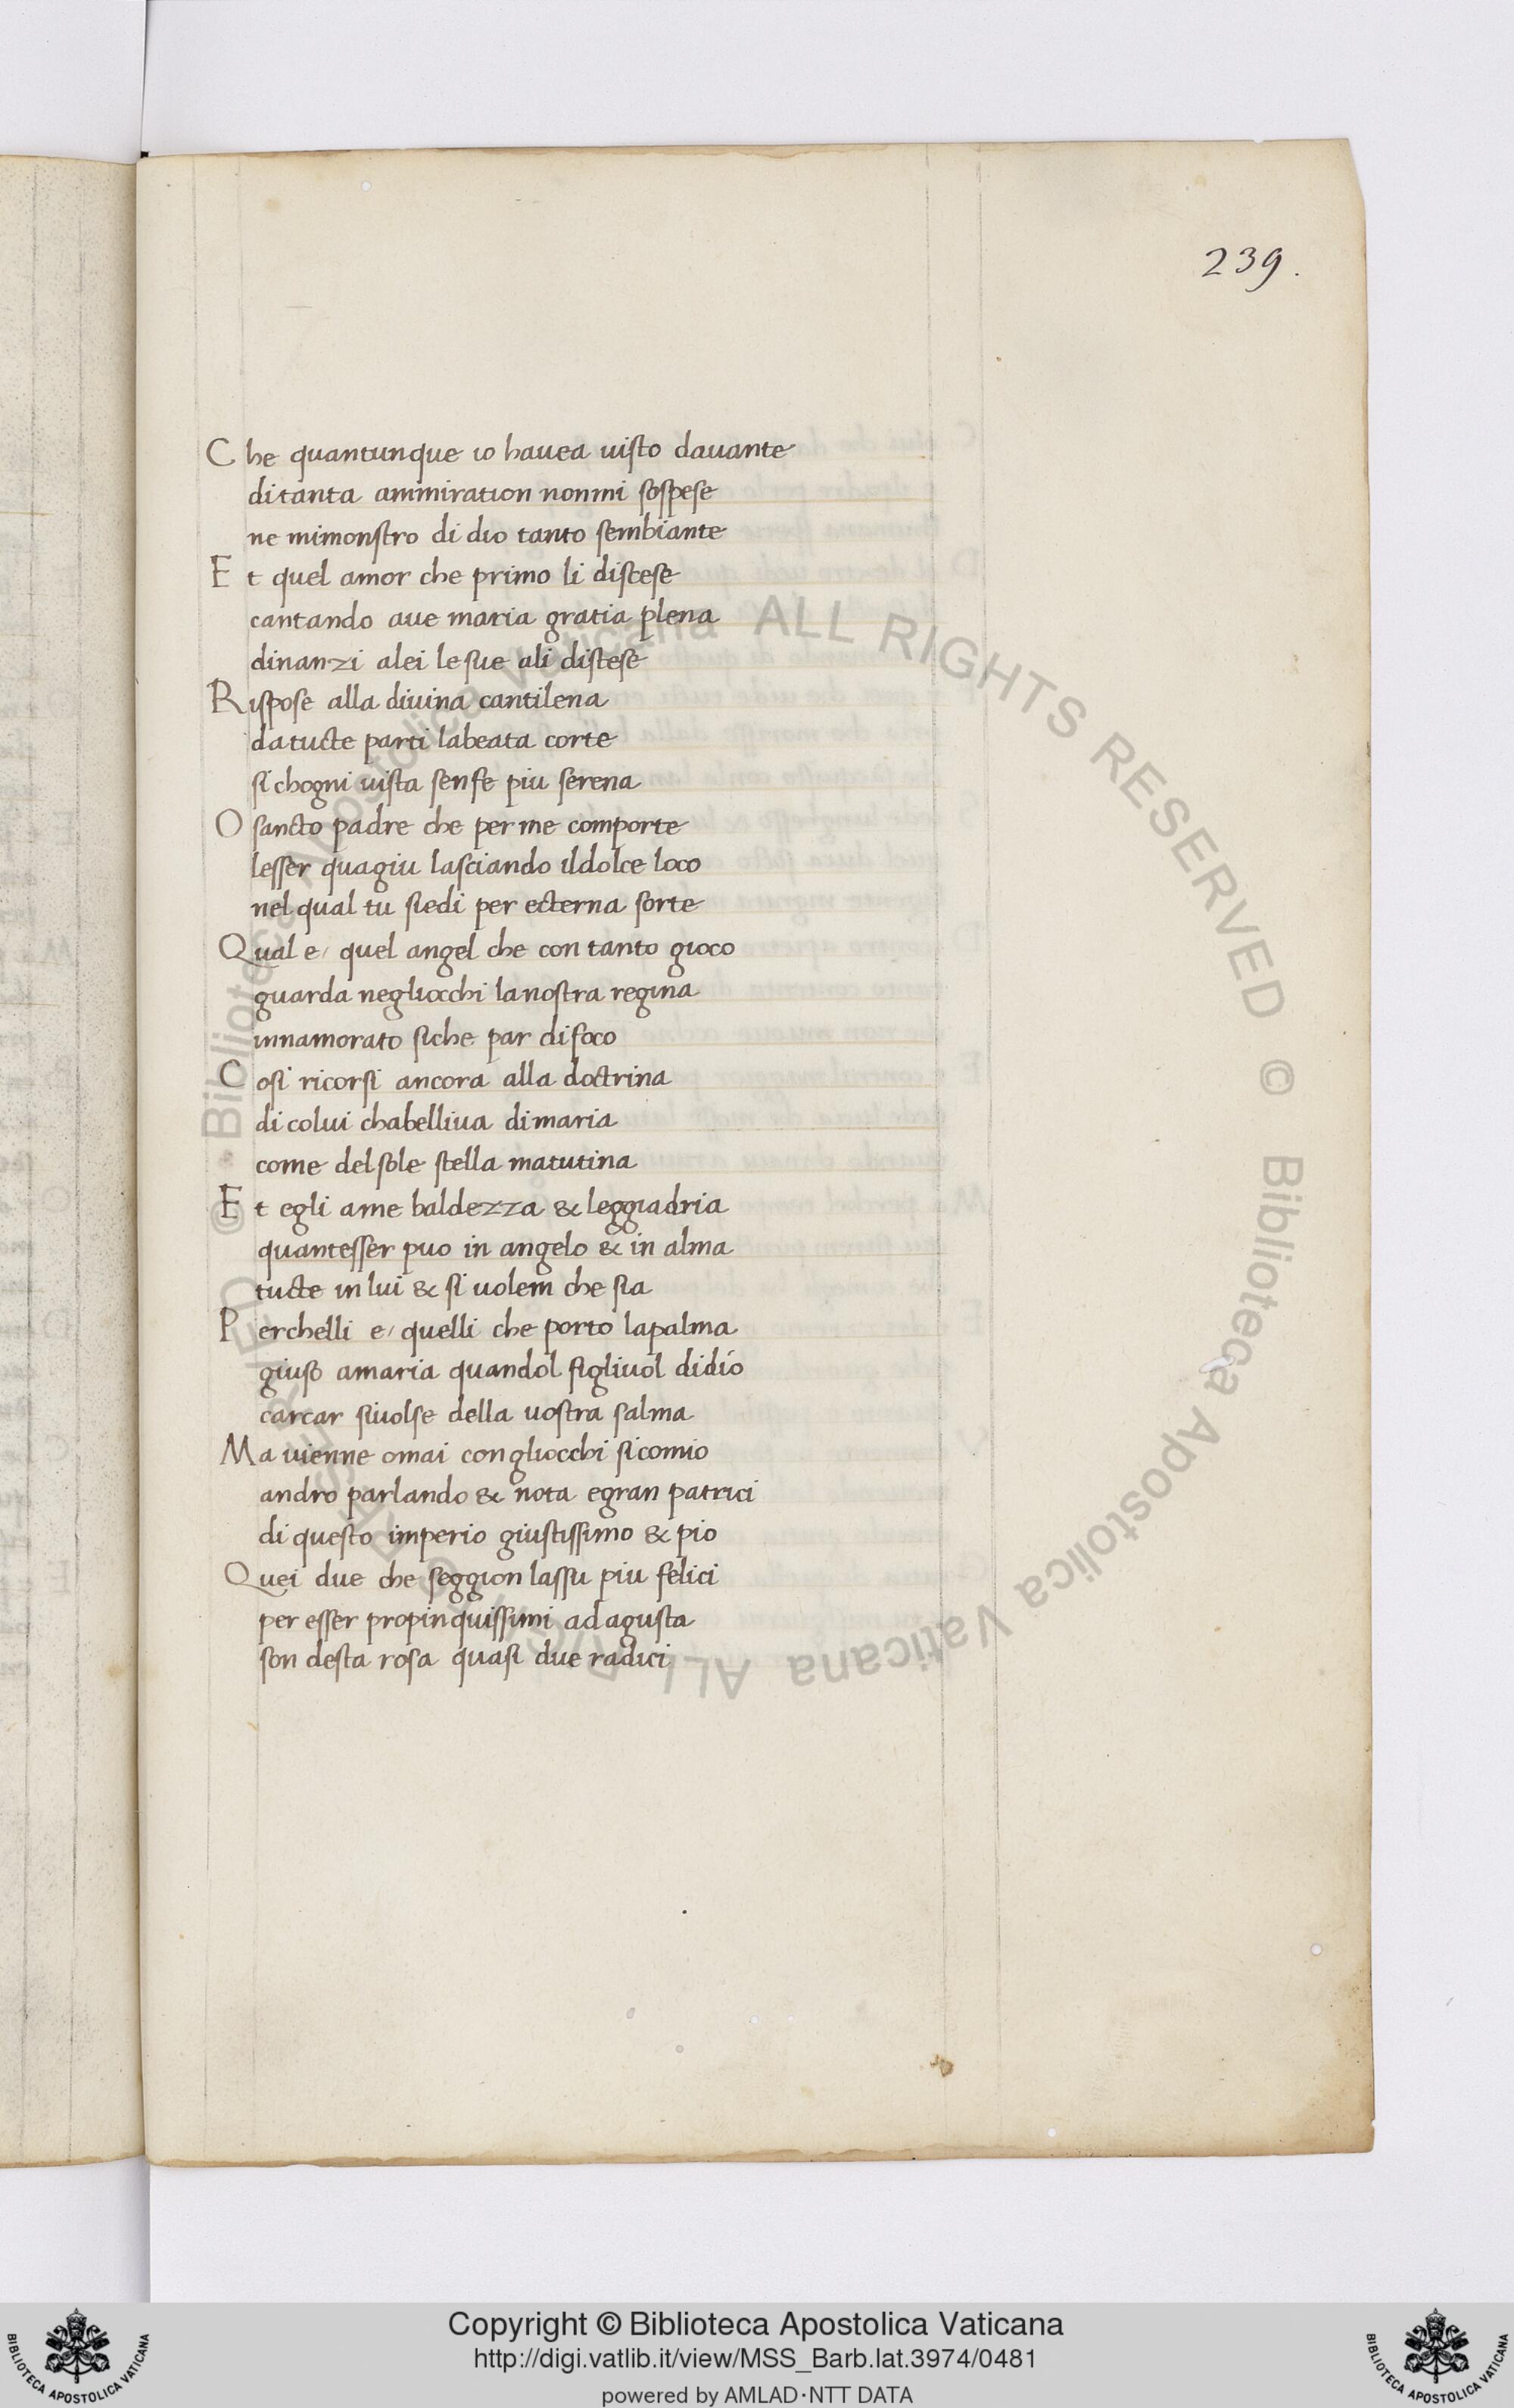 239.
Che quantunque io havea uisto dauante
ditanta ammiration nonmi sospese
ne mimonstro di dio tanto sembiante
Et quel amor che primo li discese
cantando aue maria gratia plena
dinanzi alei lesue ali distese
Rispose alla diuina cantilena
datucte parti labeata corte
si chogni uista senfe piu serena
O sancto padre che per me comporte
lesser quagiu lasciando ildolce loco
nel qual tu siedi per ecterna sorte
Qual e/ quel angel che con tanto gioco
guarda negliocchi lanostra regina
innamorato siche par difoco
Cosi ricorsi ancora alla doctrina
di colui chabelliua dimaria
come delsole stella matutina
Et egli ame baldezza & leggiadria
quantesser puo in angelo & in alma
tucte in lui & si uolem che sia
Perchelli e/ quelli che porto lapalma
giuso amaria quandol figliuol didio
carcar siuolse della uostra salma
Ma uienne omai con gliocchi sicomio
andro parlando & nota egran patrici
di questo imperio giustissimo & pio
Quei due che seggion lassu piu felici
per esser propinquissimi ad agusta
son desta rosa quasi due radici
© Biblioteca Apostolica Vaticana ALL RIGHTS RESERVED © Biblioteca Apostolica Vaticana ALL RIGHTS RESERVED
Copyright © Biblioteca Apostolica Vaticana
http://digi.vatlib.it/view/MSS_Barb.lat.3974/0481
powered by AMLAD·NTT DATA
BIBLIOTECA APOSTOLICA VATICANA
BIBLIOTECA APOSTOLICA VATICANA